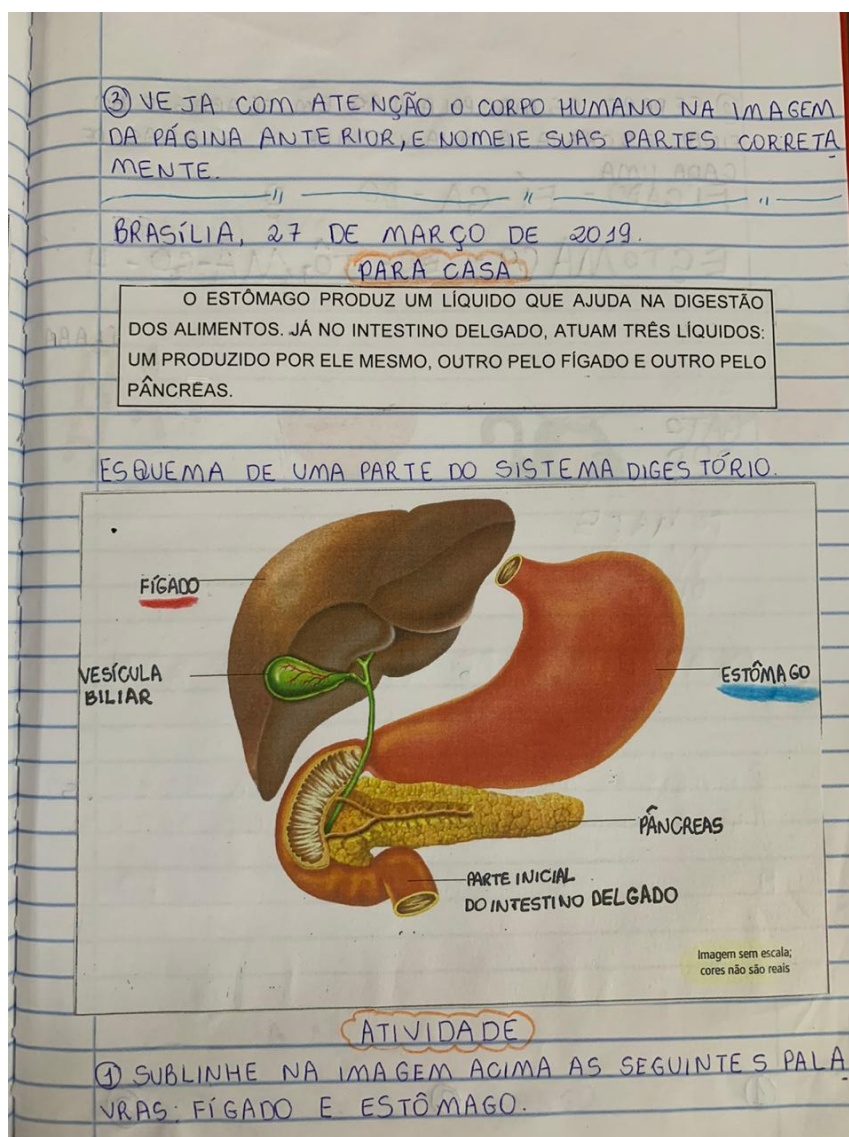 ③ VEJA COM ATENÇÃO O CORPO HUMANO NA IMAGEM
DA PÁGINA ANTERIOR, E NOMEIE SUAS PARTES CORRETA
MENTE.
BRASÍLIA, 27 DE MARÇO DE 2019.
PARA CASA
O ESTÔMAGO PRODUZ UM LÍQUIDO QUE AJUDA NA DIGESTÃO
DOS ALIMENTOS. JÁ NO INTESTINO DELGADO, ATUAM TRÊS LÍQUIDOS:
UM PRODUZIDO POR ELE MESMO, OUTRO PELO FÍGADO E OUTRO PELO
PÂNCREAS.
ESQUEMA DE UMA PARTE DO SISTEMA DIGESTÓRIO.
FÍGADO
VESÍCULA
BILIAR
ESTÔMAGO
PÂNCREAS
PARTE INICIAL
DO INTESTINO DELGADO
Imagem sem escala;
cores não são reais
ATIVIDADE
① SUBLINHE NA IMAGEM ACIMA AS SEGUINTES PALA
VRAS: FÍGADO E ESTÔMAGO.